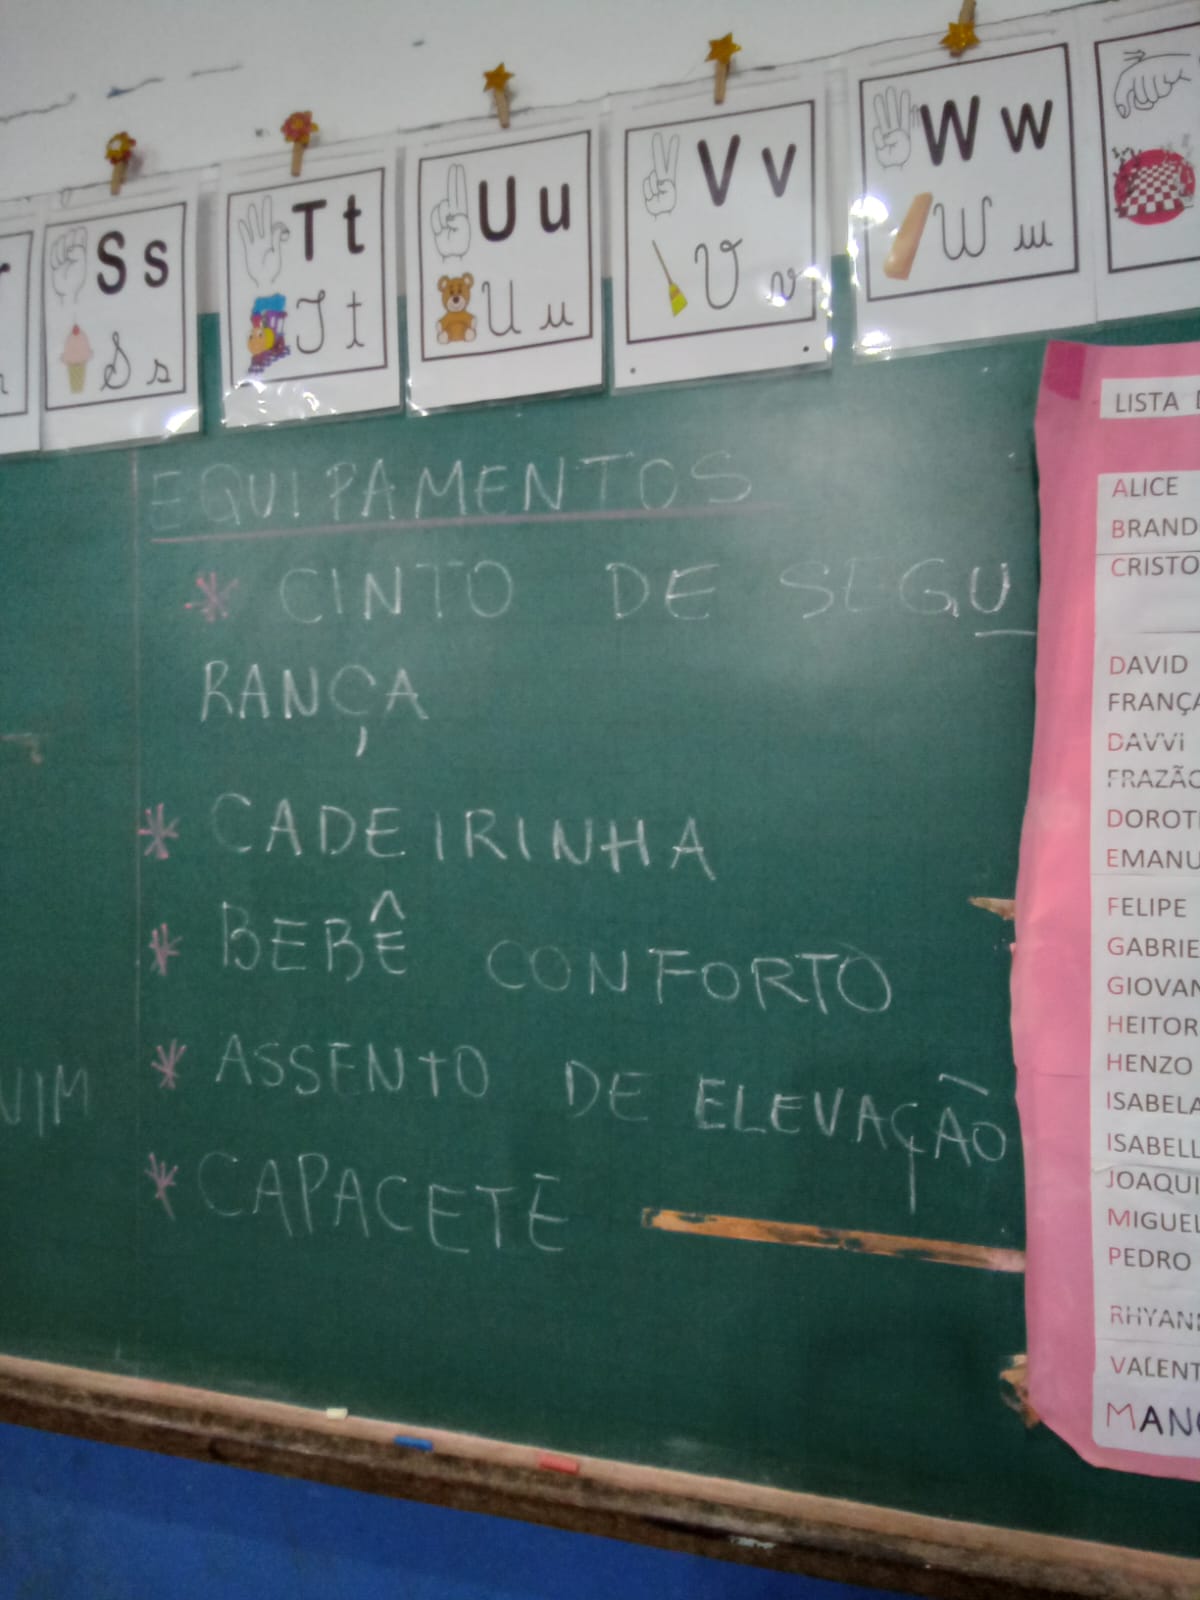 S s
S s
T t
T t
U u
U u
V v
V v
W w
W w
EQUIPAMENTOS
* CINTO DE SEGU
RANÇA
* CADEIRINHA
* BEBÊ CONFORTO
* ASSENTO DE ELEVAÇÃO
* CAPACETE
LISTA
ALICE
BRAND
CRISTO
DAVID
FRANÇA
DAVVI
FRAZÃO
DOROT
EMANU
FELIPE
GABRIE
GIOVAN
HEITOR
HENZO
ISABELA
ISABELL
JOAQUI
MIGUEL
PEDRO
RHYAN
VALENT
MANO